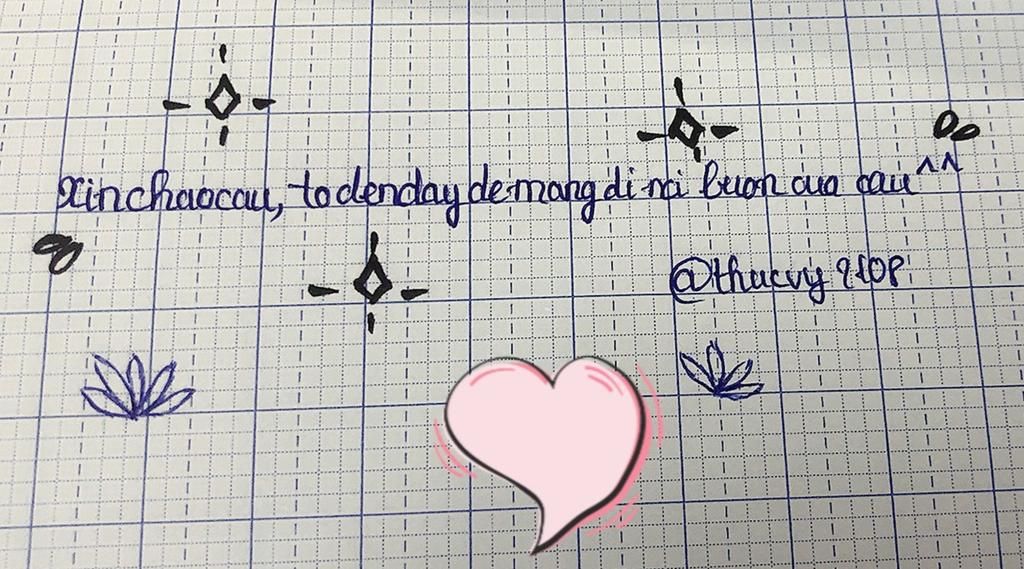 xinchaocau, todenday demang di nỗi buon cua cau^^
@thucvy